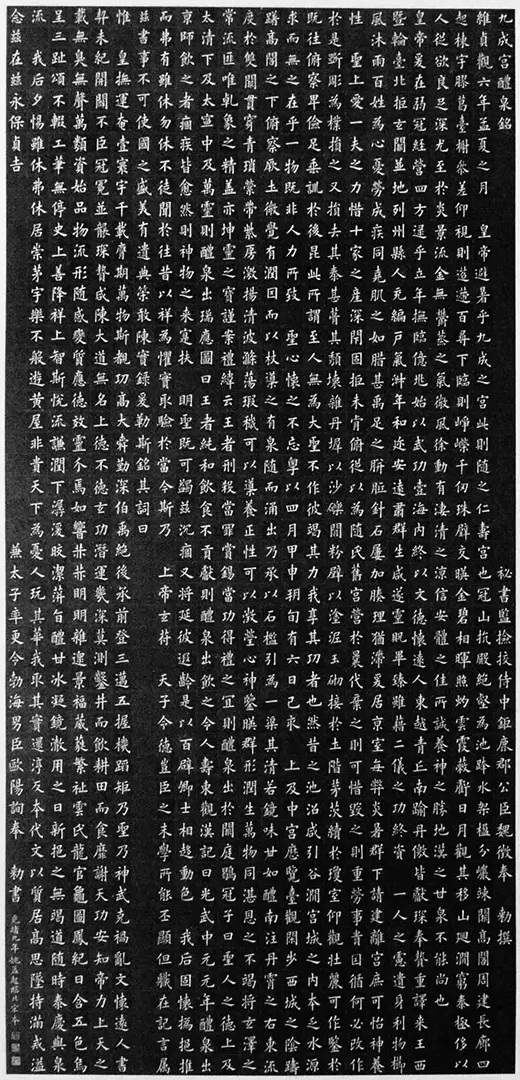 九成宮醴泉銘 祕書監撿挍侍中鉅鹿郡公臣魏徵奉 勅撰
維貞觀六年孟夏之月 皇帝避暑乎九成之宮此則隨之仁壽宮也冠山抗殿絕壑為池跨水架楹分巖竦闕高閣周建長廊四
起棟宇膠葛臺榭參差仰視則迢遰百尋下臨則崢嶸千仞珠璧交暎金碧相暉照灼雲霞蔽虧日月觀其移山迴澗窮泰極侈以
人從欲良足深尤至於炎景流金無鬱蒸之氣微風徐動有淒清之涼信安體之佳所誠養神之勝地漢之甘泉不能尚也
皇帝爰在弱冠經營四方逮乎立年撫臨億兆始以武功壹海內終以文德懷遠人東越青丘南踰丹徼皆獻琛奉贄重譯來王西
暨輪臺北拒玄闕並地列州縣人充編戶氣淑年和迩安遠肅群生咸遂靈貺畢臻雖藉二儀之功終資 一人之慮遺身利物櫛
風沐雨百姓為心憂勞成疾同堯肌之如腊甚禹足之胼胝針石屢加腠理猶滯爰居京室每弊炎暑群下請建離宮庶可怡神養
性 聖上愛一夫之力惜十家之產深閉固拒未肯俯從以為隨氏舊宮營於曩代棄之則可惜毀之則重勞事貴因循何必改作
於是斲彫為樸損之又損去其泰甚葺其頹壞雜丹墀以沙礫間粉壁以塗泥玉砌接於土階茅茨續於瓊室仰觀壯麗可作鑒於
既往俯察卑儉足垂訓於後昆此所謂至人無為大聖不作彼竭其力我享其功者也然昔之池沼咸引谷澗宮城之內本乏水源
求而無之在乎一物既非人力所致 聖心懷之不忘粵以四月甲申朔旬有六日己亥 上及中宮歷覽臺觀閑步西城之陰躊
躇高閣之下俯察厥土微覺有潤因而以杖導之有泉隨而涌出乃承以石檻引為一渠其清若鏡味甘如醴南注丹霄之右東流
於雙闕貫穿青瑣縈帶紫房激揚清波滌蕩瑕穢可以導養正性可以澂瑩心神鑒暎群形潤生萬物同湛恩之不竭將玄澤之
常流匪唯乾象之精蓋亦坤靈之寶謹案禮緯云王者刑殺當罪賞錫當功得禮之宜則醴泉出於闕庭鶡冠子曰聖人之德上及
太清下及太寧中及萬靈則醴泉出瑞應圖曰王者純和飲食不貢獻則醴泉出飲之令人壽東觀漢記曰光武中元元年醴泉出
京師飲之者痼疾皆愈然則神物之來寔扶 明聖既可蠲茲沉痼又將延彼遐齡是以百辟卿士相趨動色 我后固懷撝挹推
而弗有雖休勿休不徒聞於往昔以祥為懼實取驗於當今斯乃 上帝玄符 天子令德豈臣之末學所能丕顯但職在記言屬
茲書事不可使國之盛美有遺典策敢陳實錄爰勒斯銘其詞曰
惟 皇撫運奄壹寰宇千載膺期萬物斯覩功高大舜勤深伯禹絕後承前登三邁五握機蹈矩乃聖乃神武克禍亂文懷遠人書
契未紀開闢不臣冠冕並襲琛贄咸陳大道無名上德不德玄功潛運幾深莫測鑿井而飲耕田而食靡謝天功安知帝力上天之
載無臭無聲萬類資始品物流形隨感變質應德效靈介焉如響赫赫明明雜遝景福葳蕤繁祉雲氏龍官龜圖鳳紀日含五色烏
呈三趾頌不輟工筆無停史上善降祥上智斯悅流謙潤下潺湲皎潔蓱旨醴甘冰凝鏡澈用之日新挹之無竭道隨時泰慶與泉
流 我后夕惕雖休弗休居崇茅宇樂不般遊黃屋非貴天下為憂人玩其華我取其實還淳反本代文以質居高思墜持滿戒溢
念茲在茲永保貞吉 兼太子率更令勃海男臣歐陽詢奉 勅書
光緒九年姚孟起臨北宋本